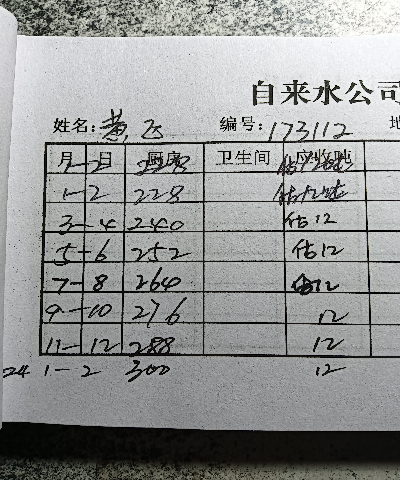 自来水公司
姓名: 黄飞 编号: 173112
月 日 厨房 卫生间 应收吨
1-2 228 估12吨
3-4 240 估12
5-6 252 估12
7-8 264 估12
9-10 276 12
11-12 288 12
24 1-2 300 12